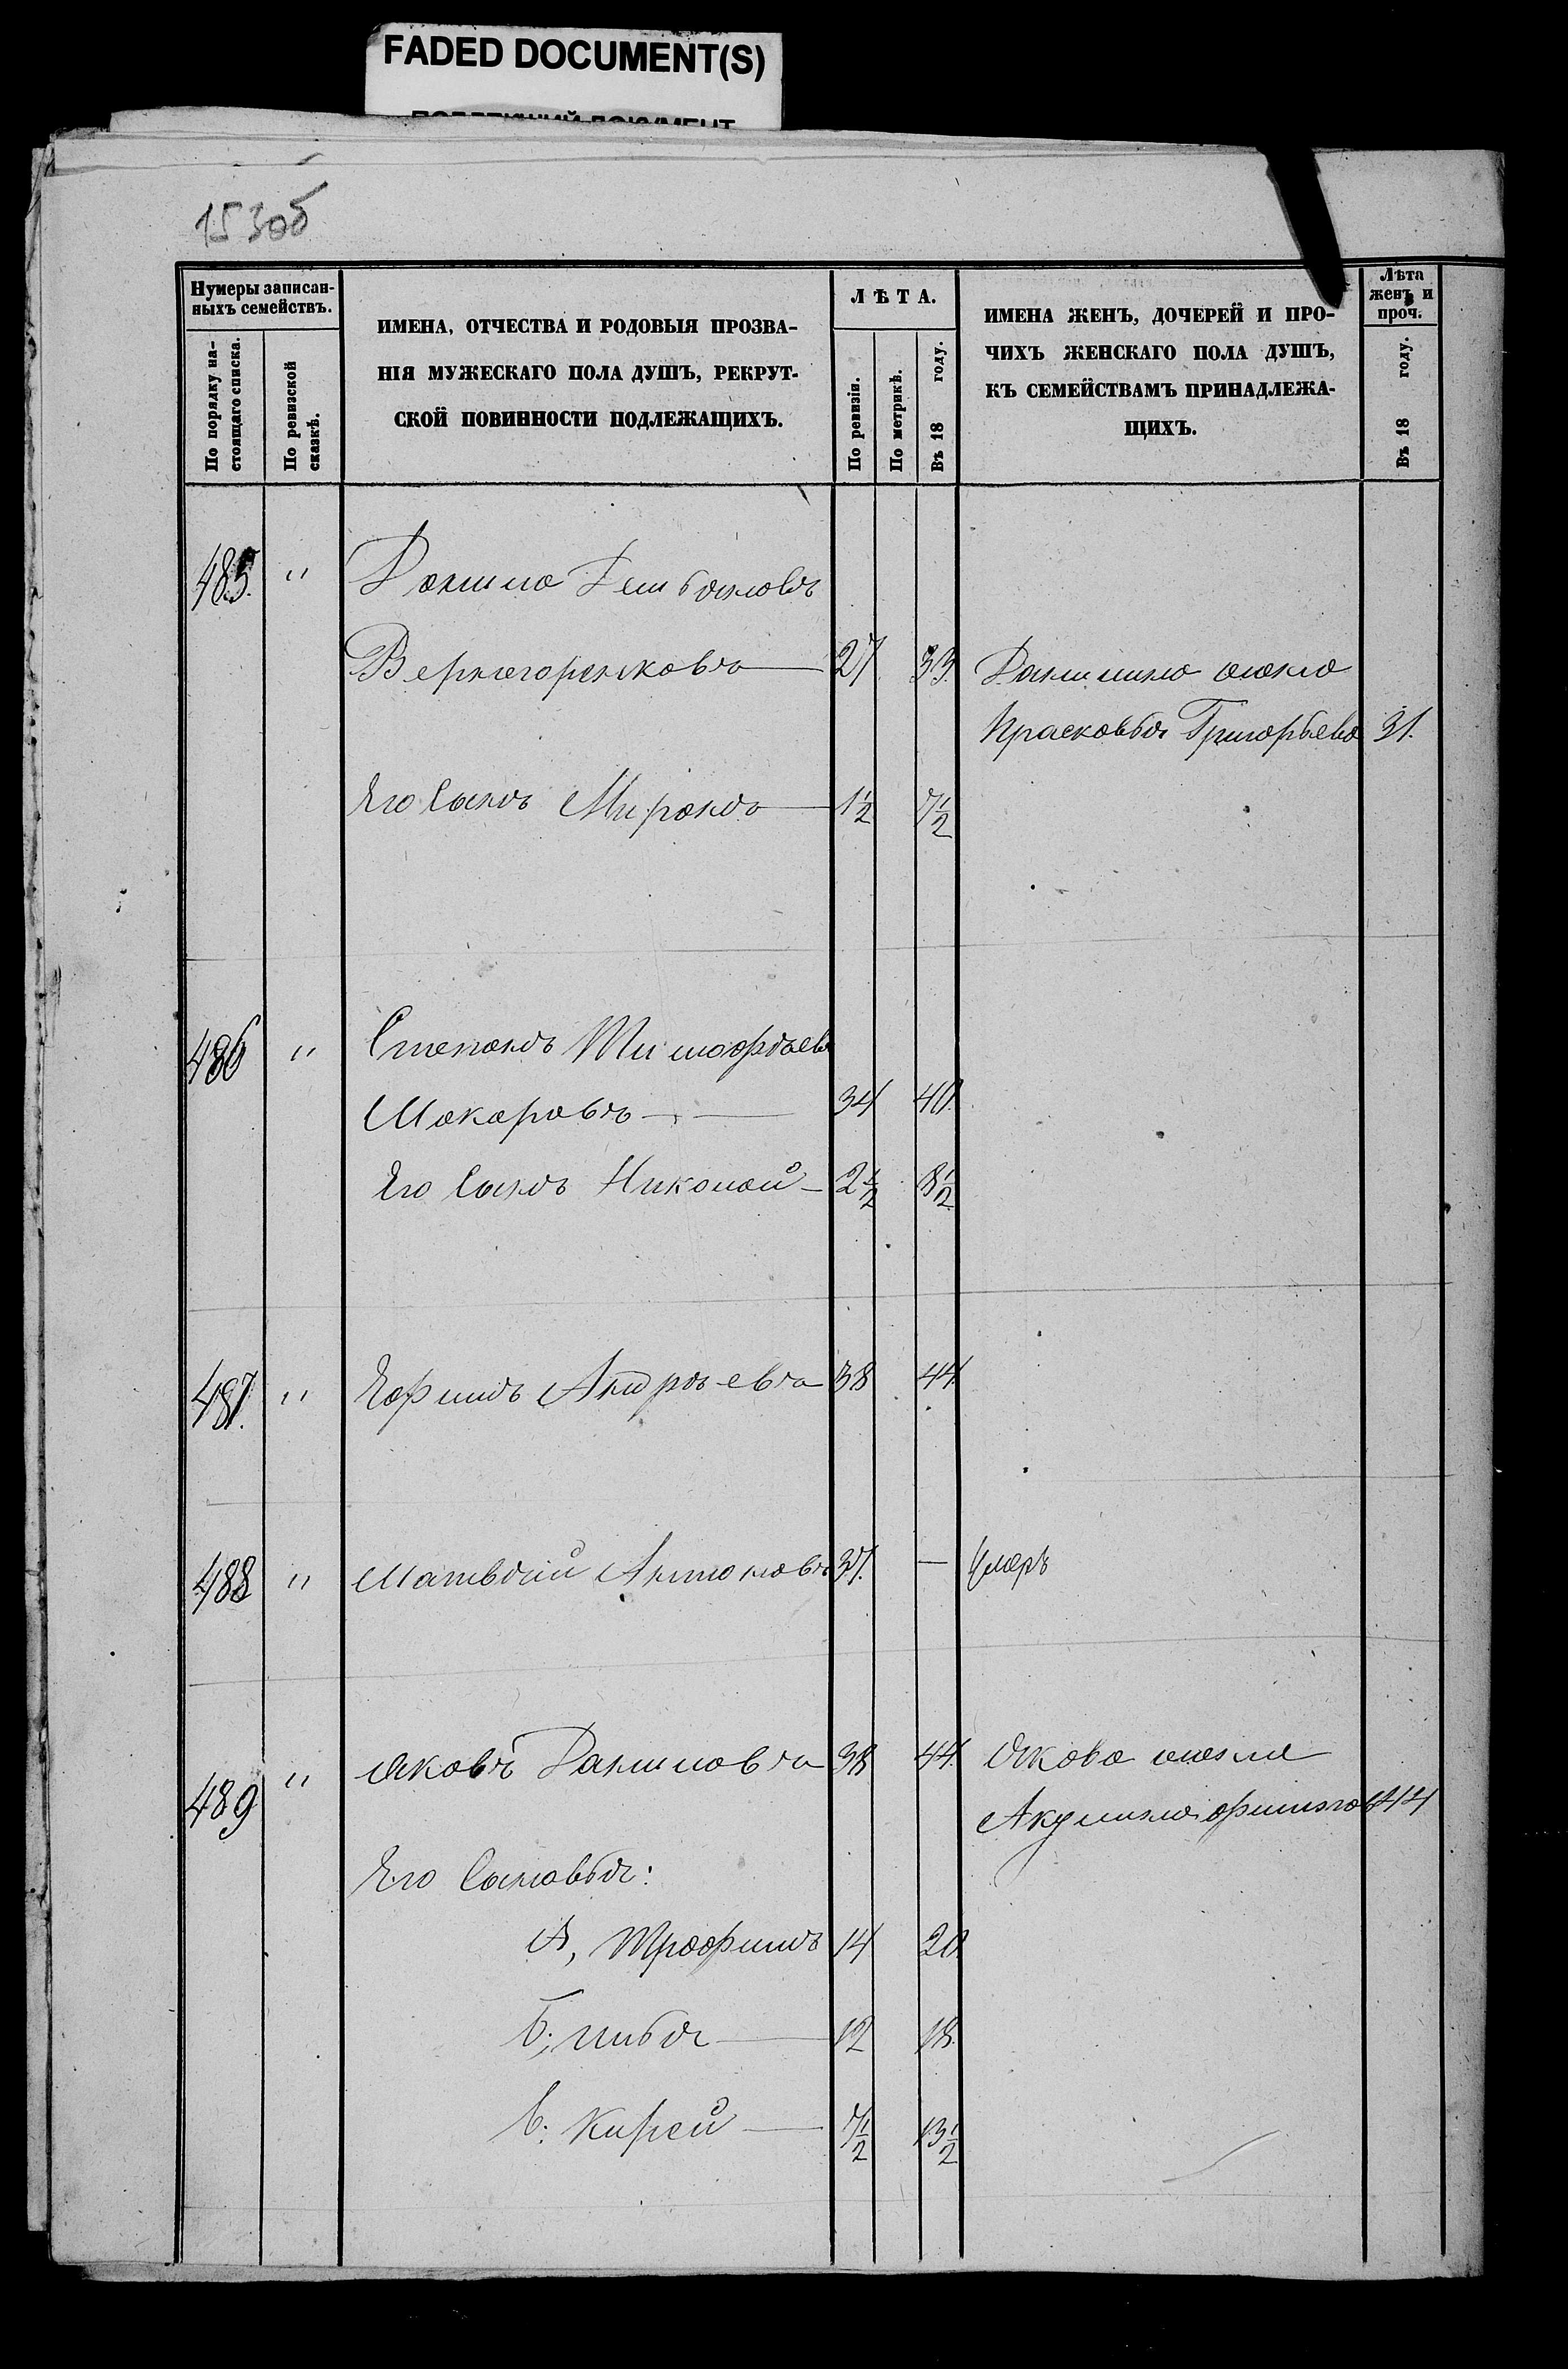 FADED DOCUMENT(S)
153об
Нумеры записан-
ныхъ семействъ.
По порядку на-
стоящаго списка.
По ревизской
сказкѣ.
ИМЕНА, ОТЧЕСТВА И РОДОВЫЯ ПРОЗВА-
НІЯ МУЖЕСКАГО ПОЛА ДУШЪ, РЕКРУТ-
СКОЙ ПОВИННОСТИ ПОДЛЕЖАЩИХЪ.
ЛѢТА.
По ревизіи.
По метрикѣ.
Въ 18 году.
ИМЕНА ЖЕНЪ, ДОЧЕРЕЙ И ПРО-
ЧИХЪ ЖЕНСКАГО ПОЛА ДУШЪ,
КЪ СЕМЕЙСТВАМЪ ПРИНАДЛЕЖА-
ЩИХЪ.
Лѣта
женъ и
проч.
Въ 18 году.
485. " Данило
27 33. Данилина жена
Прасковья Григорьева 31.
Его Сынъ Миронъ 1½ 7½
486 " Степанъ Тимофѣевъ
Макаровъ 34 40.
Его Сынъ Николай 2½ 8½
487. " Ефимъ Андрѣевъ 38 44.
488 " Матвѣй Антоновъ 37. — Умеръ
489 " Яковъ Даниловъ 38 44. Якова жена
Акулина 44
Его Сыновья:
А, Трофимъ 14 20
Б; Илья 12 18.
В: Кирей 7½ 13½